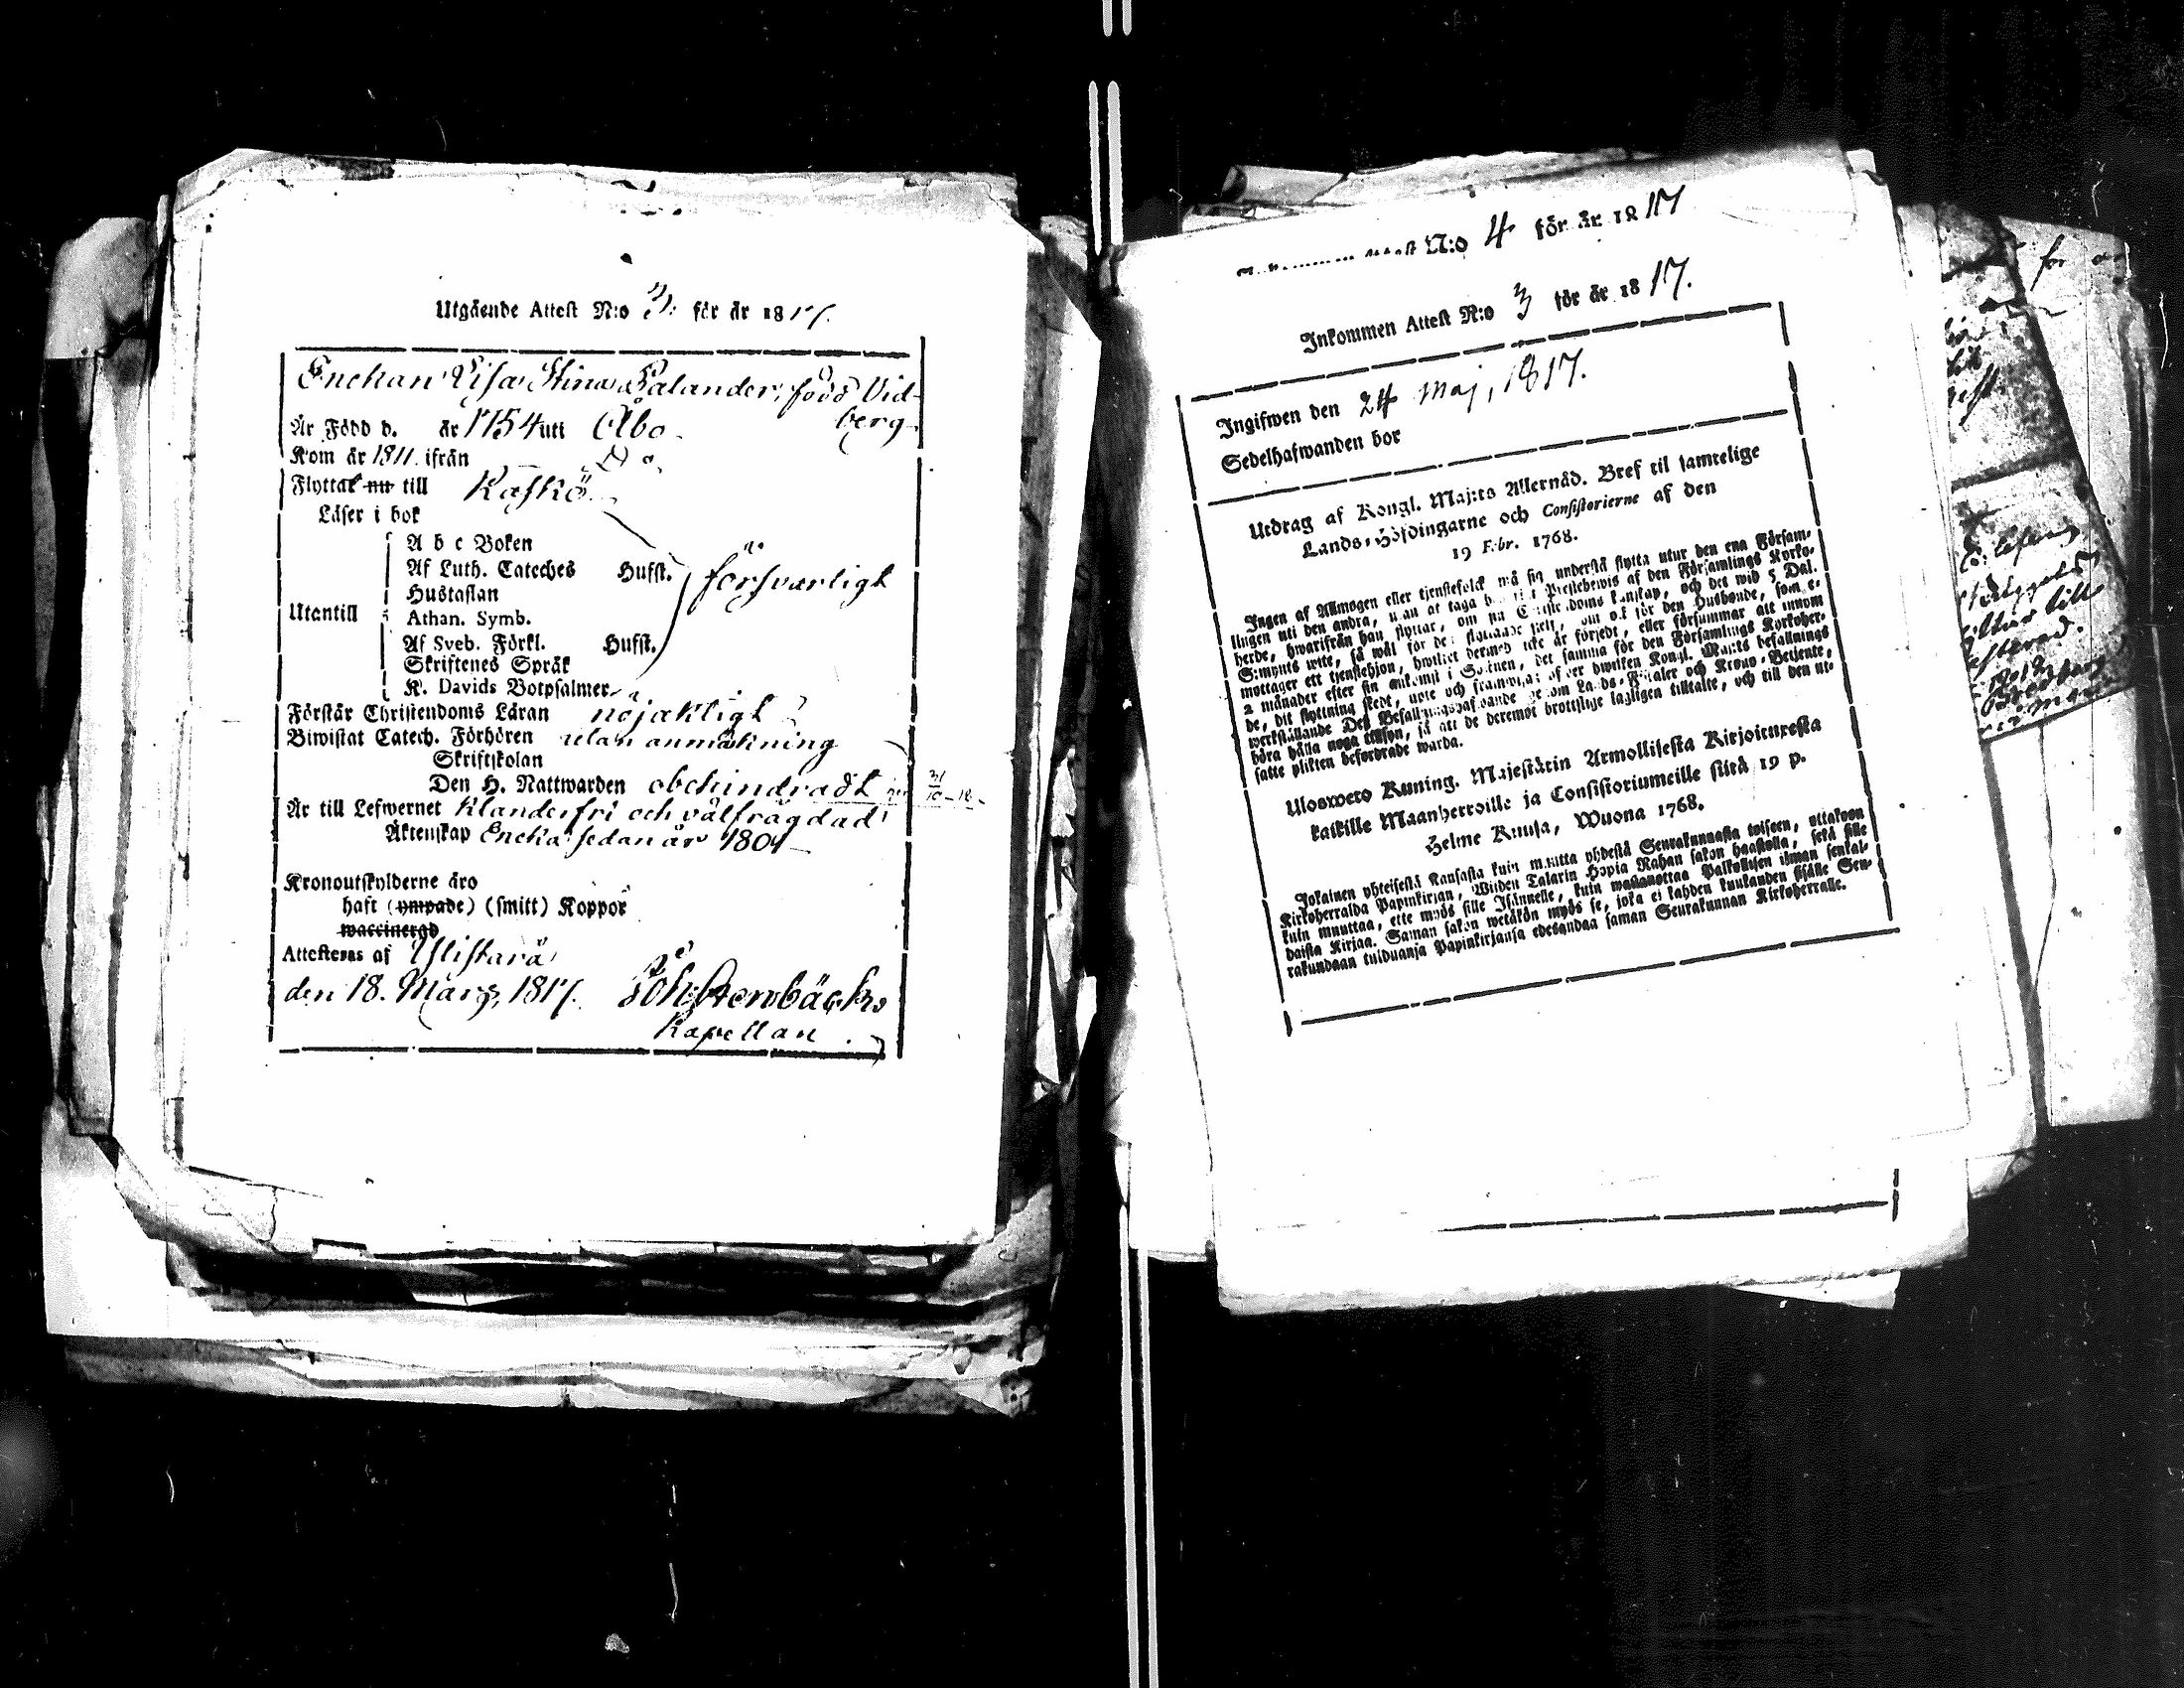 Utgående Attest N:o 3. för år 1817.
Enckan Lisa Stina Palander, född Vid-
berg
Är Född d. år 1754 uti Åbo
Kom år 1811. ifrån Do
Flyttat nu till Kaskö
Läser i bok
A b c Boken
Af Luth. Cateches Hufst.
Hustaflan
Utantill Athan. Symb. försvarligt
Af Sveb. Förkl. Hufst.
Skriftenes Språk
K. Davids Botpsalmer
Förstår Christendoms Läran nöjaktigt
Biwistat Catech. Förhören utan anmärkning
Skriftskolan
Den H. Nattwarden obehindradt
Är till Lefwernet klanderfri och välfrägdad
Äktenskap Encka sedan år 1804
Kronoutskylderne äro
haft (ympade) (smitt) Koppor
waccinerad
Attesteras af Ylistarå
den 18. Mars, 1817. Joh. Stenbäck
Kapellan.
N:o 4 för år 1817
Inkommen Attest N:o 3 för år 1817.
Ingifwen den 24 Maj, 1817.
Sedelhafwanden bor
Utdrag af Kongl. Maj:ts Allernåd. Bref til samtelige
Lands-Höfdingarne och Consistorierne af den
19 Febr. 1768.
Ingen af Allmogen eller tjenstefolck må sig understå flytta utur den ena Försam-
lingen uti den andra, utan at taga Prestebewis af den Församlings Kyrko-
herde, hwarifrån han flyttar, om sin Christendoms kunskap, och det wid 5 Dal.
S:mynts wite, så wäl för den flyttande sjelf, som ock för den Husbonde, som e-
mottager ett tjenstehjon, hwilket dermed icke är försedt, eller försummar att innom
2 månader efter sin ankomst i Socknen, det samma för den Församlings Kyrkoher-
de, dit flyttning skedt, upte och framwisa; öfwer hwilken Kongl. Maj:ts befallnings
werkställande Des Befallningshafwande genom Lands-Fiskaler och Krono-Betjente,
böra hålla noga tillsyn, så att de deremot brottslige lagligen tilltalte, och till den ut-
satte plikten befordrade warda.
Ulosweto Kuning. Majestätin Armollisesta Kirjoituxesta
kaikille Maanherroille ja Consistoriumeille siitä 19 p.
Helme Kuusa, Wuona 1768.
Jokainen yhteisestä Kansasta kuin muutta yhdestä Seurakunnasta toiseen, ottakoon
Kirkoherralda Papinkirjan, Wiiden Talarin Hopia Rahan sakon haastolla, sekä sille
kuin muuttaa, ette myös sille Isännelle, kuin wastanottaa Palkollisen ilman senkal-
daista Kirjaa. Saman sakon wetäkön myös se, joka ei kahden kuukauden sisälle Seu-
rakundaan tulduanja Papinkirjansa edesandaa saman Seurakunnan Kirkoherralle.